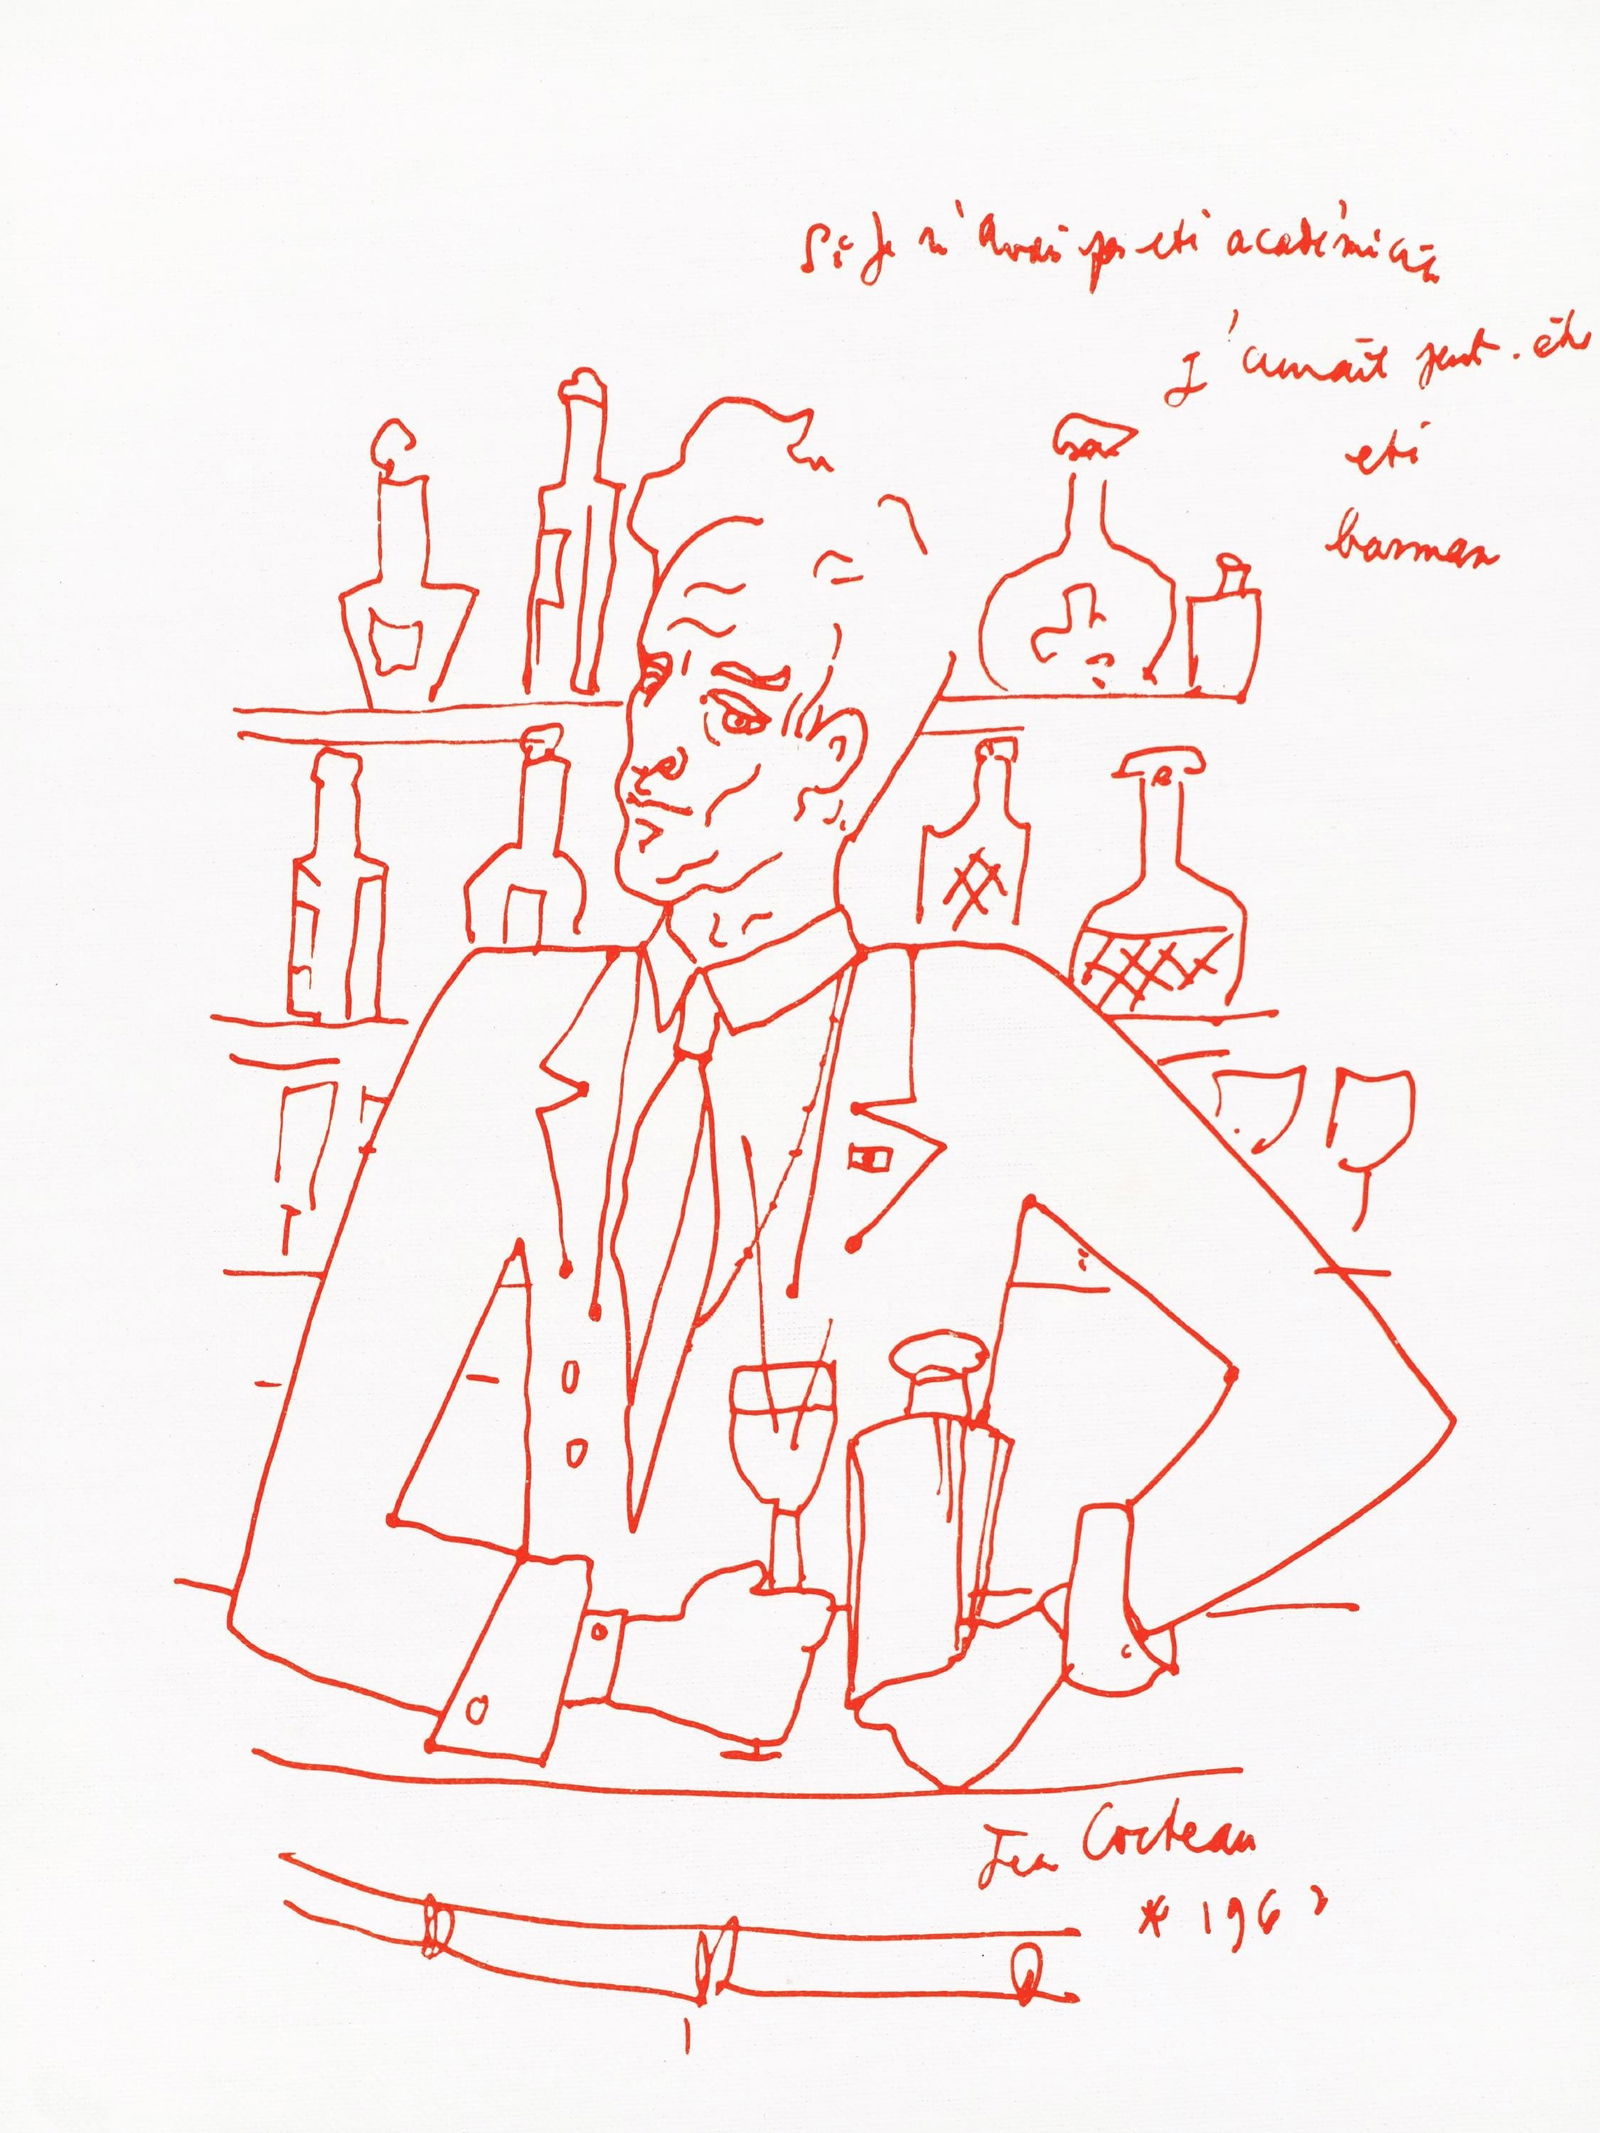 Si je n'avais pas eté académicien
J'aurait peut-être
eté
barman
Jean Cocteau
* 1963